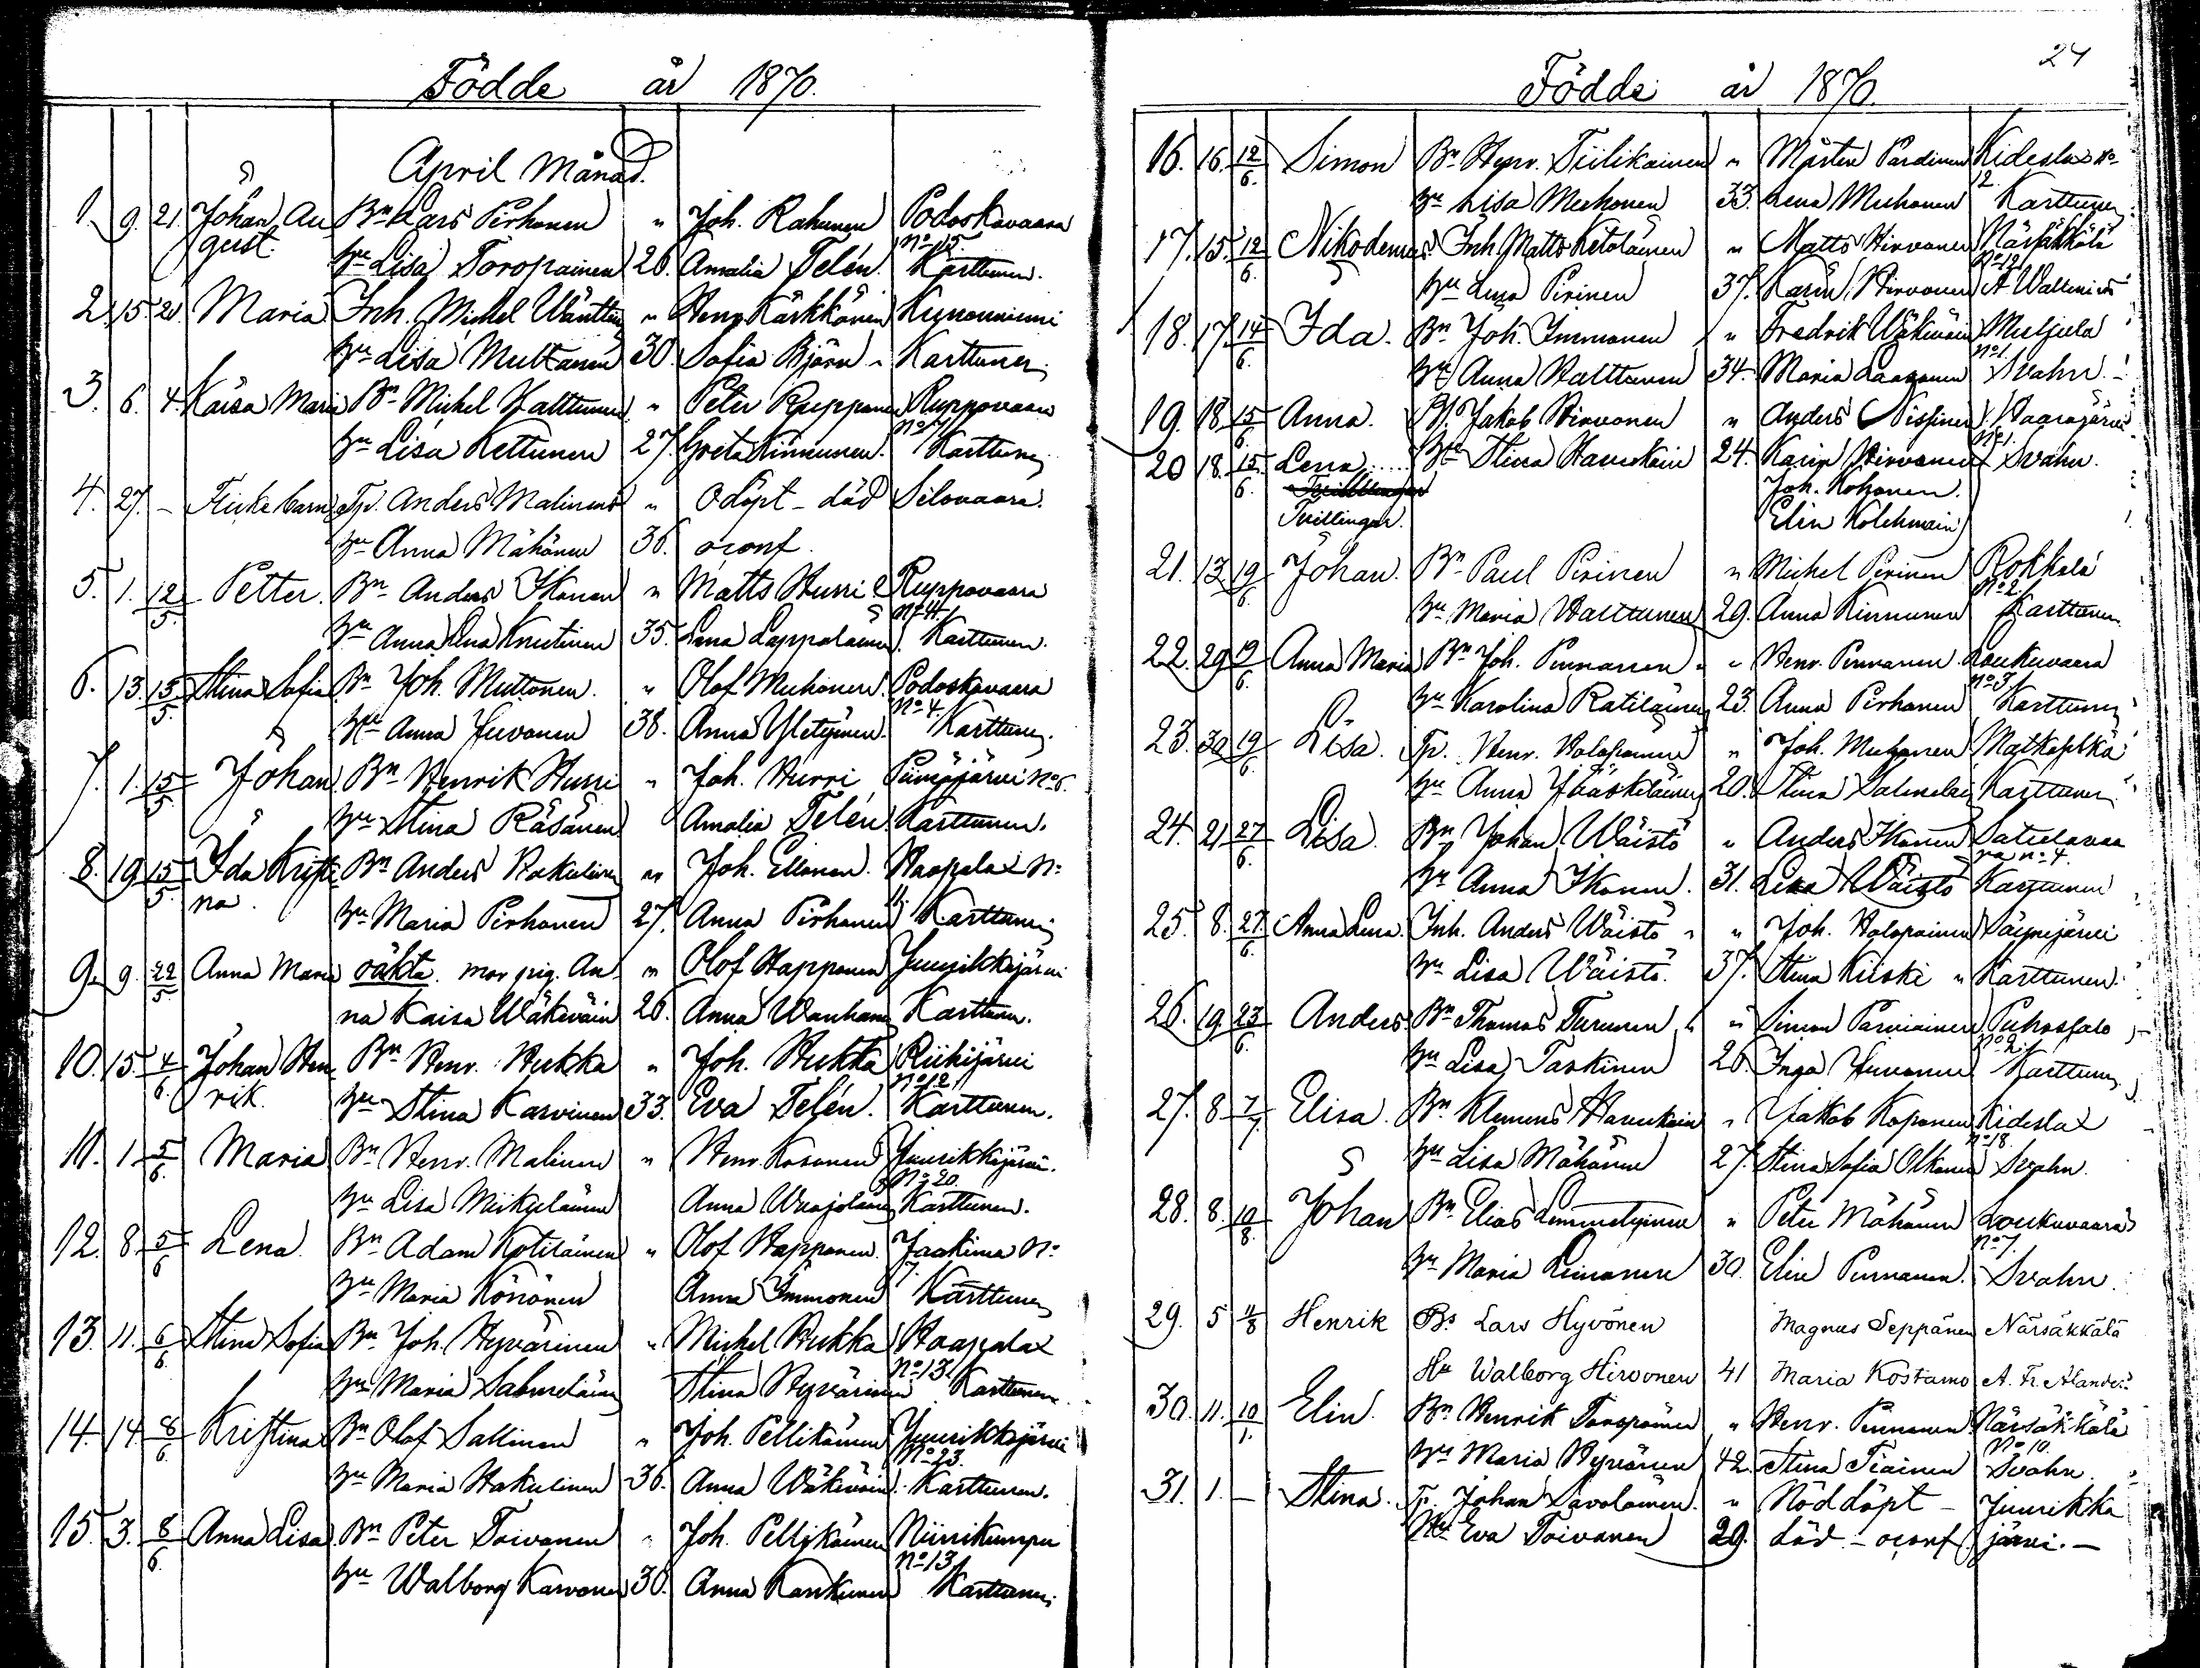 Födde år 1870.
April Månad.
1. 9. 21. Johan Au Bn Lars Pirhonen " Joh. Rahunen Podoskavaara
gust. hu Lisa Toropainen 26. Amalia Telén. No 15. Karttunen.
2. 15 21. Maria Inh. Michel " Henr. Kärkkäinen Kunonniemi
hu Lisa Multanen 30. Sofia Björn " Karttunen
3. 6. 4. Kaisa Maria Bn Michel Halttunen " Peter Ruppovaara
hu Lisa Kettunen 27. Greta Kinnunen. Karttunen
4. 27. – Flickebarn Tp. Anders Malinen " Odöpt – död Silovaara.
hu Anna Mähönen 36. oconf.
5. 1. 12/5. Petter. Bn Anders Ikonen " Matts Hurri Ruppovaara
hu Anna Lena Knutinen 35. Lena Lappalainen No 4. Karttunen.
6. 13. 15/5. Stina Sofia Bn Joh. Muttonen. " Olof Muhonen Podoskavaara
hu Anna Juvonen 38. Anna Yletyinen. No 4. Karttunen.
7. 1. 15/5 Johan Bn Henrik Hurri " Joh. Hurri No 6.
hu Stina Räsänen Amalia Telén Karttunen.
8. 19 15/5. Ida Kristi Bn Anders Hakulinen " Joh. Ellonen. Haapalax No
na. hu Maria Pirhonen 27. Anna Pirhonen 11. Karttunen
9. 9. 22/5 Anna Maria oäkta. mor pig. An " Olof Happonen Juurikkajärvi
na Kaisa Wäkeväin 26. Anna Wanhanen Karttunen.
10. 15. 4/6. Johan Hen Bn Henr. Hukka " Joh. Hukka Riihijärvi
rik. hu Stina Karvinen 33. Eva Telén. No 12. Karttunen.
11. 1. 5/6. Maria Bn Henr. Malinen " Henr. Kosonen Juurikkajärvi.
hu Lisa Mikkeläinen Anna No 20. Karttunen.
12. 8. 5/6 Lena. Bn Adam Kotilainen " Olof Happonen. Jaakima No
hu Maria Könönen Anna Immonen 7. Karttunen
13. 11. 6/6 Stina Sofia Bn Joh. Hyvärinen " Michel Hukka Haapalax
hu Maria Salmeläinen Stina Hyvärinen No 13. Karttunen
14. 14. 8/6. Kristina Bn Olof Sallinen " Joh. Pellikäinen Juurikkajärvi
hu Maria Hakulinen 36. Anna Wäkeväin No 23. Karttunen.
15. 3. 8/6. Anna Lisa Bn Peter Toivanen " Joh. Pellikäinen Niinikumpu
hu Walborg Karvonen 30. Anna Karttunen No 13. Karttunen
24
Födde år 1870.
16. 16. 12/6. Simon Bn Henr. Tiilikainen " Mårten Pardinen Kideslax No
hu Lisa Muhonen 33. Lena Muhonen 12. Karttunen
17. 15. 12/6. Nikodemus Inh. Matts Ketolainen " Matts Hirvonen Närsäkkälä
hu Lena Pirinen 37. Karin Hirvonen No 12. A Wallenius
18. 17. 14/6. Ida. Bn Joh. Immonen " Fredrik Wäkeväin Muljula
hu Anna Halttunen 34. Maria Laasonen No 1. Svahn.
19. 18. 15/6. Anna. Bn Jakob Hirvonen " Anders Nissinen Haarajärvi
20 18. 15/6. Lena hu Stina Haverinen 24. Karin Hirvonen No 1. Svahn.
Tvillingar Joh. Kohonen.
Tvillingar. Elin Kolehmain
21. 13. 19/6. Johan. Bn Paul Pirinen " Michel Pirinen Rokkala
hu Maria Halttunen 29. Anna Kinnunen No 2. Karttunen
22. 29 19/6. Anna Maria Bn Joh. Pennanen " Henr. Pennanen Loukuvaara
hu Karolina Ratilainen 23. Anna Pirhonen No 3. Karttunen
23. 30 19/6 Lisa. Tp. Henr. Holopainen " Joh. Muhonen Matkaselkä
hu Anna Jääskeläinen 20. Stina Salmelai Karttunen
24. 21 27/6. Lisa. Bn Johan Wäistö " Anders Ikonen Satulavaa
hu Anna Ikonen. 31. Lena Wäistö ra No 4. Karttunen
25. 8. 27/6. Anna Lena. Inh. Anders Wäistö " Joh. Holopainen Säynejärvi
hu Lisa Wäistö. 37. Stina Kiiski " Karttunen.
26. 19 23/6. Anders Bn Thomas Turunen " Simon Parviainen Puhossalo
hu Lisa Taskinen 26. Inga Juvonen No 2. Karttunen
27. 8 7/7. Elisa. Bn Klemens " Jakob Koponen Kideslax
hu Lisa Mähönen 27. Stina Sofia Olkonen No 18. Svahn.
28. 8. 10/8. Johan Bn Elias Lemmetyinen " Peter Mähönen Loukuvaara
hu Maria Leinonen 30. Elin Pennanen. No 7. Svahn.
29. 5 4/8 Henrik Bs Lars Hyvönen Magnus Seppänen Närsäkkälä
Hu Walborg Hirvonen 41 Maria Kostamo A. Fr. Ålander
30. 11. 10/1. Elin. Bn Henrik Toropainen " Henr. Pennanen Närsäkkälä
hu Maria Hyvönen 42. Stina Tiainen No 10. Svahn.
31. 1. – Stina. Tp. Johan Savolainen. " Nöddöpt – Juurikka
hu Eva Toivanen 29. död – oconf. järvi. –